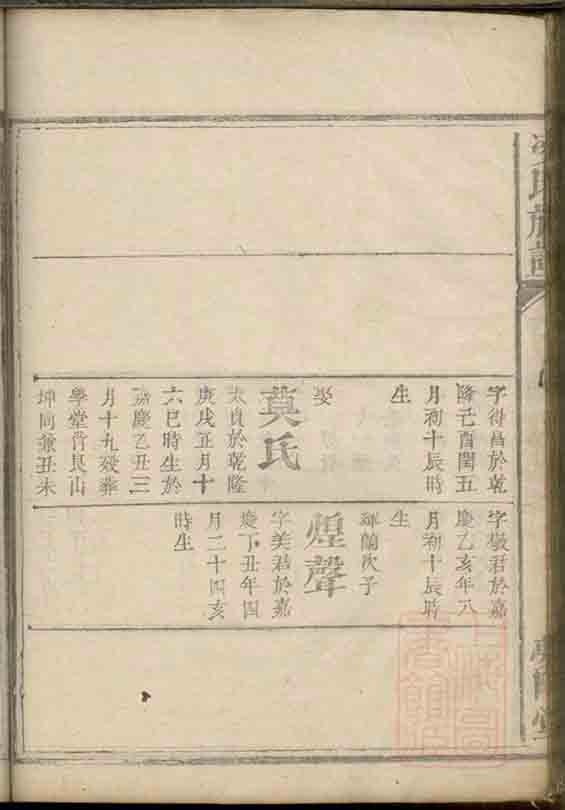 氏族譜
字得昌於乾
隆己酉閏五
月初十辰時
生
娶
莫氏
太貞於乾隆
庚戌正月十
六巳時生於
嘉慶乙丑三
月十九歿葬
學堂背艮山
坤向兼丑未
字敬君於嘉
慶乙亥年八
月初十辰時
生
輝蘭次子
煌聲
字美君於嘉
慶丁丑年四
月二十四亥
時生